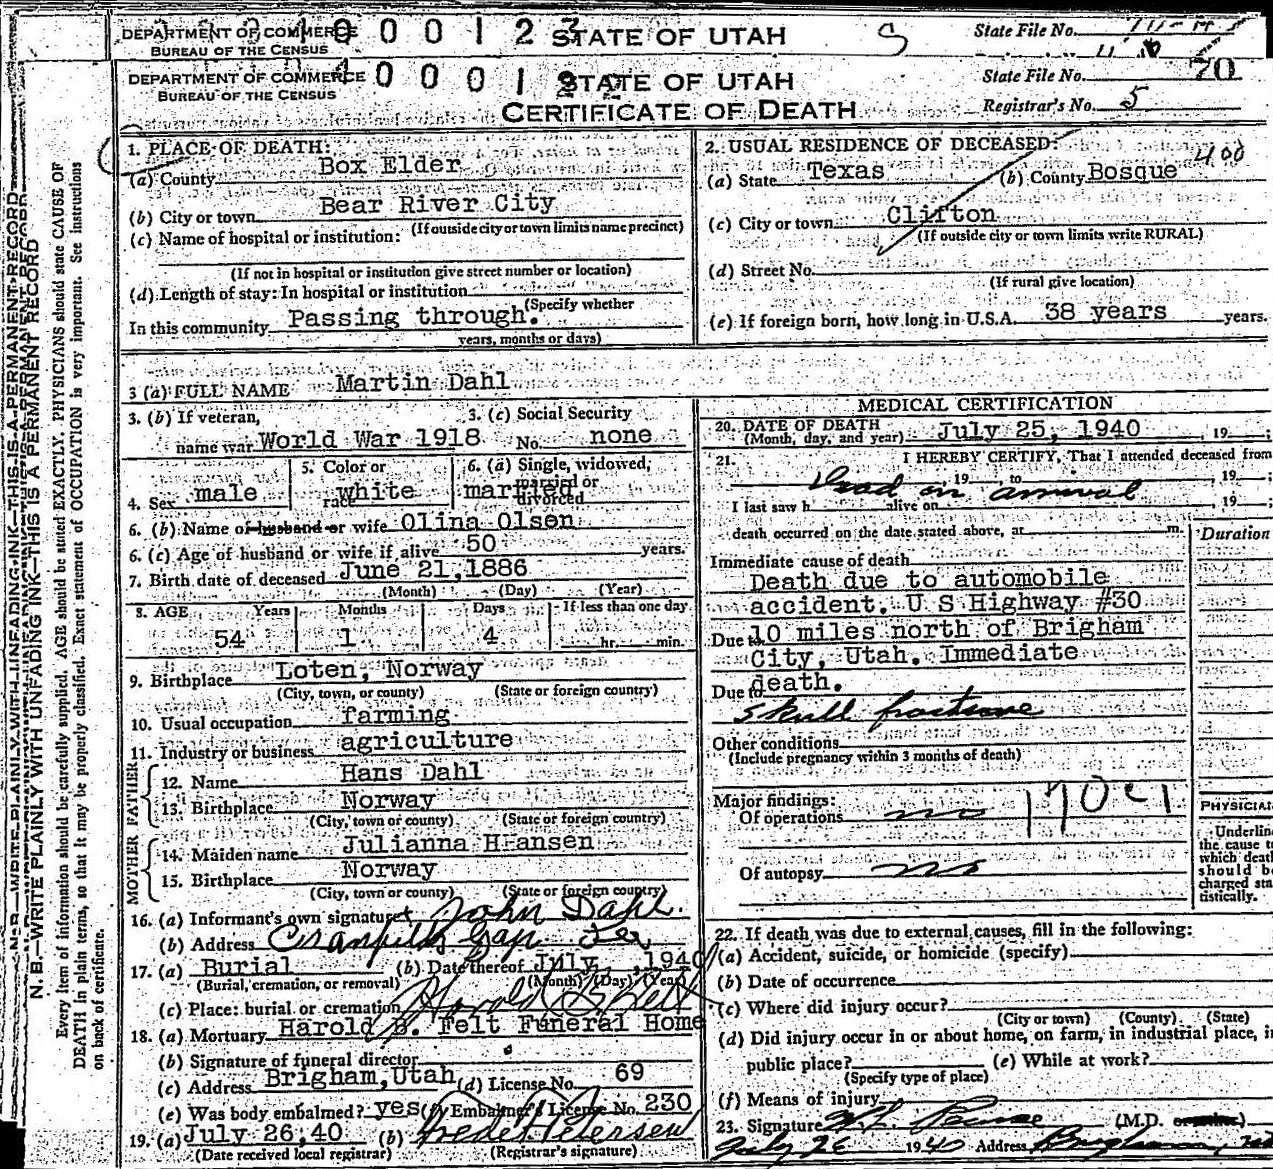 DEPARTMENT OF COMMERCE 4 0 0 0 1 2 3 STATE OF UTAH S State File No.
BUREAU OF THE CENSUS
DEPARTMENT OF COMMERCE 4 0 0 0 1 STATE OF UTAH State File No. 70
BUREAU OF THE CENSUS
CERTIFICATE OF DEATH Registrar's No. 5
N. B.—WRITE PLAINLY WITH UNFADING INK—THIS IS A PERMANENT RECORD
Every item of information should be carefully supplied. AGE should be stated EXACTLY. PHYSICIANS should state CAUSE OF
DEATH in plain terms, so that it may be properly classified. Exact statement of OCCUPATION is very important. See instructions
on back of certificate.
1. PLACE OF DEATH:
(a) County Box Elder
(b) City or town Bear River City
(If outside city or town limits name precinct)
(c) Name of hospital or institution:
(If not in hospital or institution give street number or location)
(d) Length of stay: In hospital or institution
(Specify whether
In this community Passing through.
years, months or days)
2. USUAL RESIDENCE OF DECEASED: 400
(a) State Texas (b) County Bosque
(c) City or town Clifton
(If outside city or town limits write RURAL)
(d) Street No.
(If rural give location)
(e) If foreign born, how long in U.S.A. 38 years years.
3 (a) FULL NAME Martin Dahl
3. (b) If veteran, 3. (c) Social Security
name war World War 1918 No. none
4. Sex male 5. Color or race white 6. (a) Single, widowed, married or divorced married
6. (b) Name of husband or wife Olina Olsen
6. (c) Age of husband or wife if alive 50 years.
7. Birth date of deceased June 21, 1886
(Month) (Day) (Year)
8. AGE Years Months Days If less than one day
54 1 4 hr. min.
9. Birthplace Loten, Norway
(City, town, or county) (State or foreign country)
10. Usual occupation farming
11. Industry or business agriculture
FATHER
12. Name Hans Dahl
13. Birthplace Norway
(City, town, or county) (State or foreign country)
MOTHER
14. Maiden name Julianna Hansen
15. Birthplace Norway
(City, town or county) (State or foreign country)
16. (a) Informant's own signature John Dahl.
(b) Address Cranfills Gap Tex
17. (a) Burial (b) Date thereof July , 1940
(Burial, cremation, or removal) (Month) (Day) (Year)
(c) Place: burial or cremation Harold B. Felt
18. (a) Mortuary Harold B. Felt Funeral Home
(b) Signature of funeral director
(c) Address Brigham, Utah (d) License No. 69
(e) Was body embalmed? yes (f) Embalmer's License No. 230
19. (a) July 26, 40 (b) Petersen
(Date received local registrar) (Registrar's signature)
MEDICAL CERTIFICATION
20. DATE OF DEATH
(Month, day, and year) July 25, 1940 , 19 ;
21. I HEREBY CERTIFY, That I attended deceased from
, 19 , to , 19 ;
Dead on arrival
I last saw h alive on , 19 ;
death occurred on the date stated above, at m. Duration
Immediate cause of death
Death due to automobile
accident. U S Highway #30
Due to 10 miles north of Brigham
City, Utah. Immediate
Due to death.
Skull fracture
Other conditions
(Include pregnancy within 3 months of death)
Major findings:
Of operations no
Of autopsy no
PHYSICIAN
Underline
the cause to
which death
should be
charged sta
tistically.
22. If death was due to external causes, fill in the following:
(a) Accident, suicide, or homicide (specify)
(b) Date of occurrence
(c) Where did injury occur?
(City or town) (County) (State)
(d) Did injury occur in or about home, on farm, in industrial place, in
public place? (e) While at work?
(Specify type of place)
(f) Means of injury
23. Signature (M.D. or other)
July 26 1940 Address Brigham,